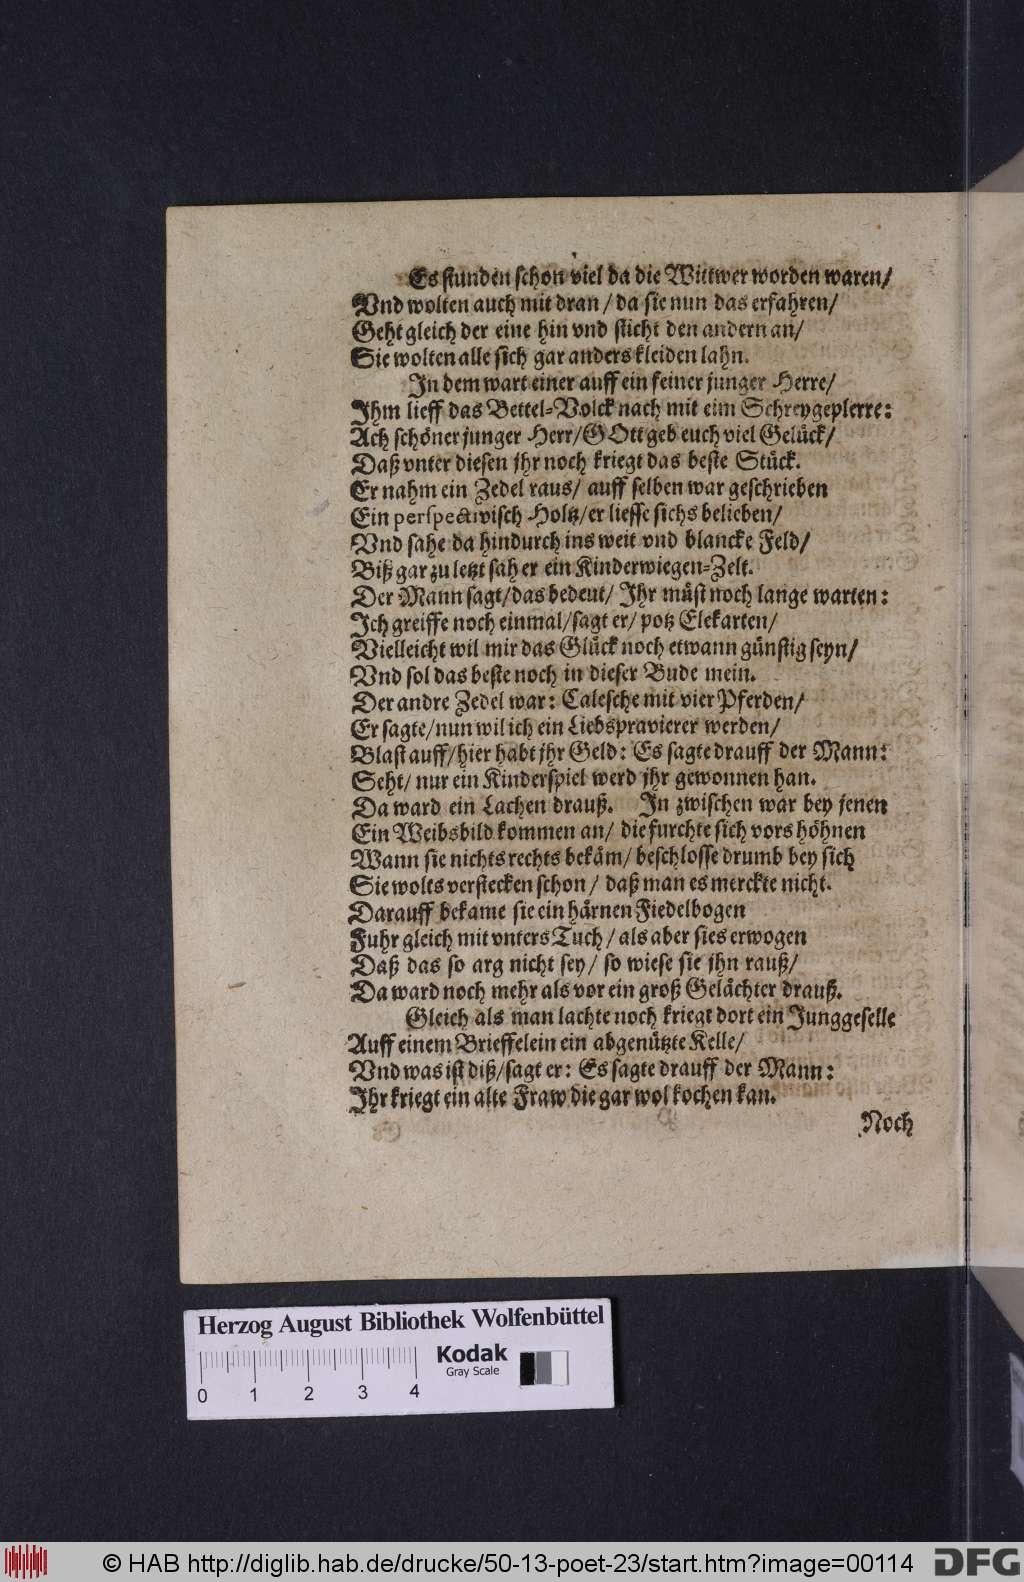 Es stunden schon viel da die Wittwer worden waren/
Vnd wolten auch mit dran / da sie nun das erfahren/
Geht gleich der eine hin vnd sticht den andern an/
Sie wolten alle sich gar anders kleiden lahn.
In dem wart einer auff ein feiner junger Herre/
Ihm lieff das Bettel-Volck nach mit eim Schreygeplerre:
Ach schöner junger Herr/ GOtt geb euch viel Gelück/
Daß vnter diesen jhr noch kriegt das beste Stück.
Er nahm ein Zedel raus/ auff selben war geschrieben
Ein perspectivisch Holtz/ er liesse sichs belieben/
Vnd sahe da hindurch ins weit vnd blancke Feld/
Biß gar zu letzt sah er ein Kinderwiegen-Zelt.
Der Mann sagt/ das bedeut/ Ihr müst noch lange warten:
Ich greiffe noch einmal/ sagt er/ potz Elekarten/
Vielleicht wil mir das Glück noch etwann günstig seyn/
Vnd sol das beste noch in dieser Bude mein.
Der andre Zedel war: Calesche mit vier Pferden/
Er sagte/ nun wil ich ein Liebspravierer werden/
Blast auff/ hier habt jhr Geld: Es sagte drauff der Mann:
Seht/ nur ein Kinderspiel werd jhr gewonnen han.
Da ward ein Lachen drauß. In zwischen war bey jenen
Ein Weibsbild kommen an/ die furchte sich vors höhnen
Wann sie nichts rechts bekäm/ beschlosse drumb bey sich
Sie wolts verstecken schon / daß man es merckte nicht.
Darauff bekame sie ein härnen Fiedelbogen
Fuhr gleich mit vnters Tuch / als aber sies erwogen
Daß das so arg nicht sey/ so wiese sie jhn rauß/
Da ward noch mehr als vor ein groß Gelächter drauß.
Gleich als man lachte noch kriegt dort ein Junggeselle
Auff einem Brieffelein ein abgenützte Kelle/
Vnd was ist diß/ sagt er: Es sagte drauff der Mann:
Ihr kriegt ein alte Fraw die gar wol kochen kan.
Noch
Herzog August Bibliothek Wolfenbüttel
Kodak
Gray Scale
0 1 2 3 4
© HAB http://diglib.hab.de/drucke/50-13-poet-23/start.htm?image=00114
DFG